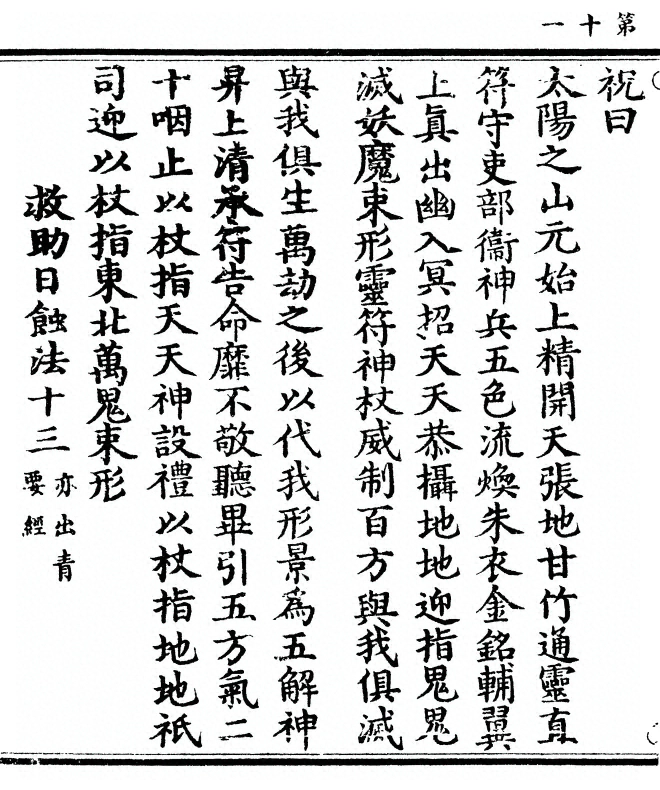 第十一
祝曰
太陽之山元始上精開天張地甘竹通靈直
符守吏部衛神兵五色流煥朱衣金銘輔翼
上眞出幽入冥招天天恭攝地地迎指鬼鬼
滅妖魔束形靈符神杖威制百方與我俱滅
與我俱生萬劫之後以代我形景爲五解神
昇上清承符告命靡不敬聽畢引五方氣二
十咽止以杖指天天神設禮以杖指地地祇
司迎以杖指東北萬鬼束形
救助日蝕法十三亦出青
要經